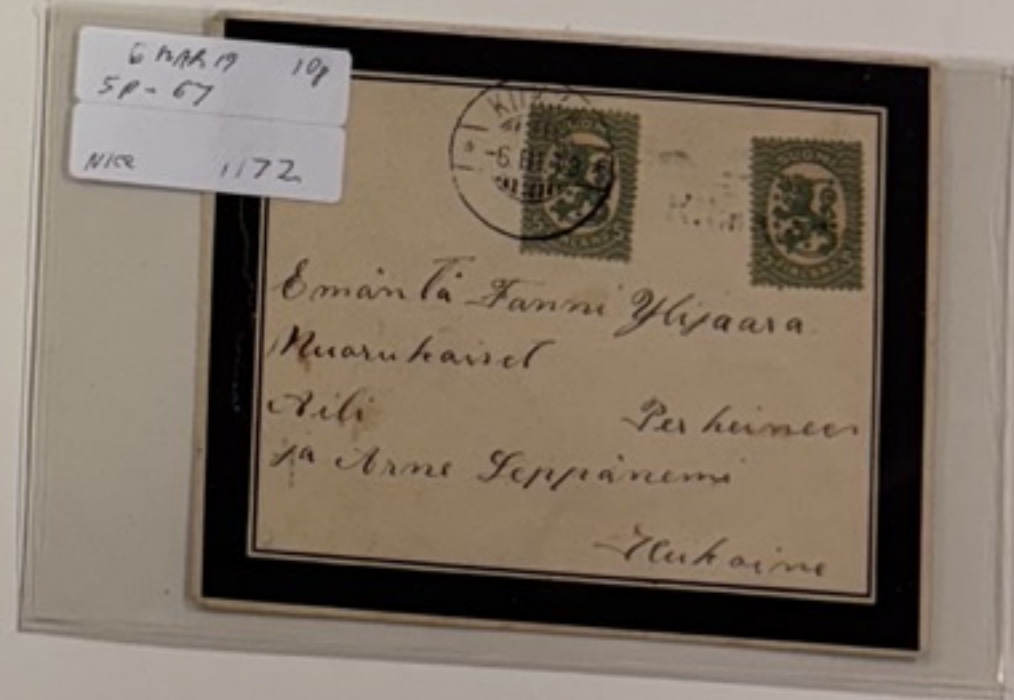 6 MAR 19 10p
5p - 67
NICE 1172
-6.III.19
Emäntä Fanni Ylijaara
Nuorukaiset
Aili Perheineen
ja Arne Seppänemi